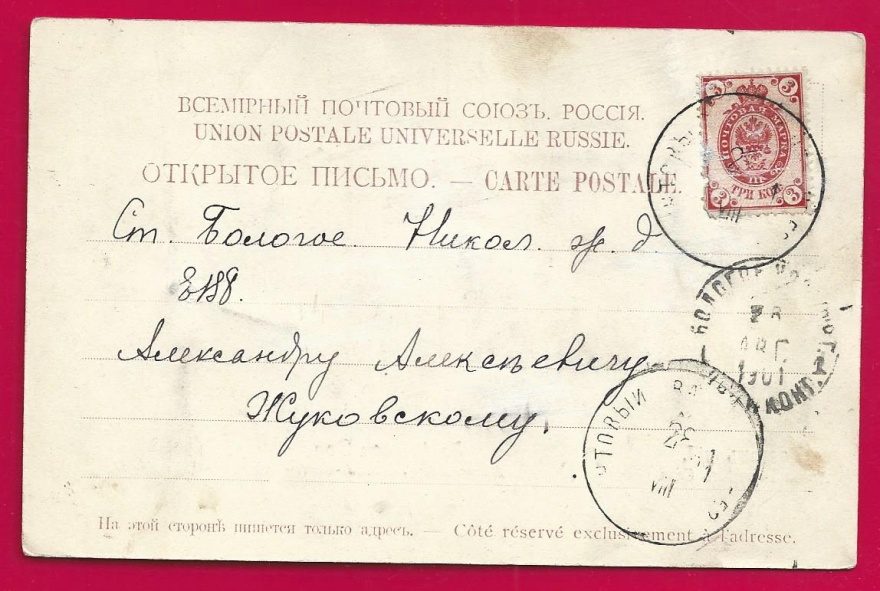 ВСЕМІРНЫЙ ПОЧТОВЫЙ СОЮЗЪ. РОССІЯ.
UNION POSTALE UNIVERSELLE RUSSIE.
ОТКРЫТОЕ ПИСЬМО. — CARTE POSTALE.
3 3
ПОЧТОВАЯ МАРКА
ТРИ КОП
3 3
VIII
Ст. Бологое. Никол. ж. д
ЕВБ.
Александру Алексѣевичу
Жуковскому.
БОЛОГОЕ
АВГ
1901
ПОЧТ
ТОВЫЙ ВА
VIII
На этой сторонѣ пишется только адресъ. — Côté réservé exclusivement à l'adresse.